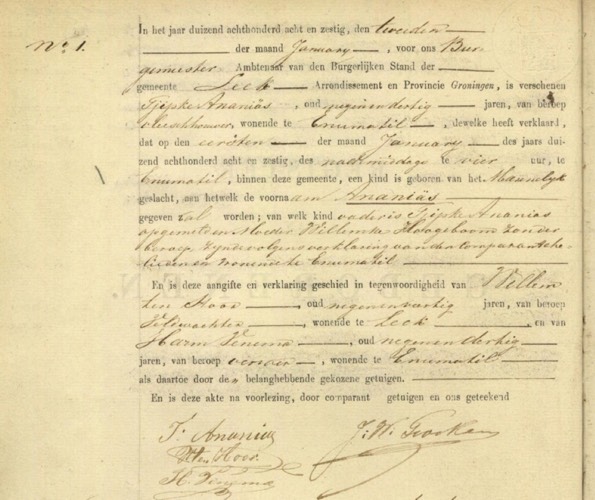 No. 1.
In het jaar duizend achthonderd acht en zestig, den tweeden
der maand January, voor ons Bur-
gemeester Ambtenaar van den Burgerlijken Stand der
gemeente Leek Arrondissement en Provincie Groningen, is verschenen
Tjipke Ananias, oud negenendertig jaren, van beroep
vleeschhouwer, wonende te Enumatil, dewelke heeft verklaard,
dat op den eersten der maand January des jaars dui-
zend achthonderd acht en zestig, des namiddags te vier ure, te
Enumatil, binnen deze gemeente, een kind is geboren van het Mannelijk
geslacht, aan hetwelk de voornaam Ananias
gegeven zal worden; van welk kind vader is Tjipke Ananias
opgemeld en Moeder Willemke Hoogeboom zonder
beroep, zijnde volgens verklaring van den Comparant Echte-
lieden en wonende te Enumatil
En is deze aangifte en verklaring geschied in tegenwoordigheid van Willem
ten Hoor, oud negenenveertig jaren, van beroep
Veldwachter, wonende te Leek, en van
Harm Venema, oud negenendertig
jaren, van beroep verver, wonende te Enumatil
als daartoe door den belanghebbende gekozene getuigen.
En is deze akte na voorlezing, door comparant getuigen en ons geteekend
T. Ananias
W ten Hoor
H. Venema